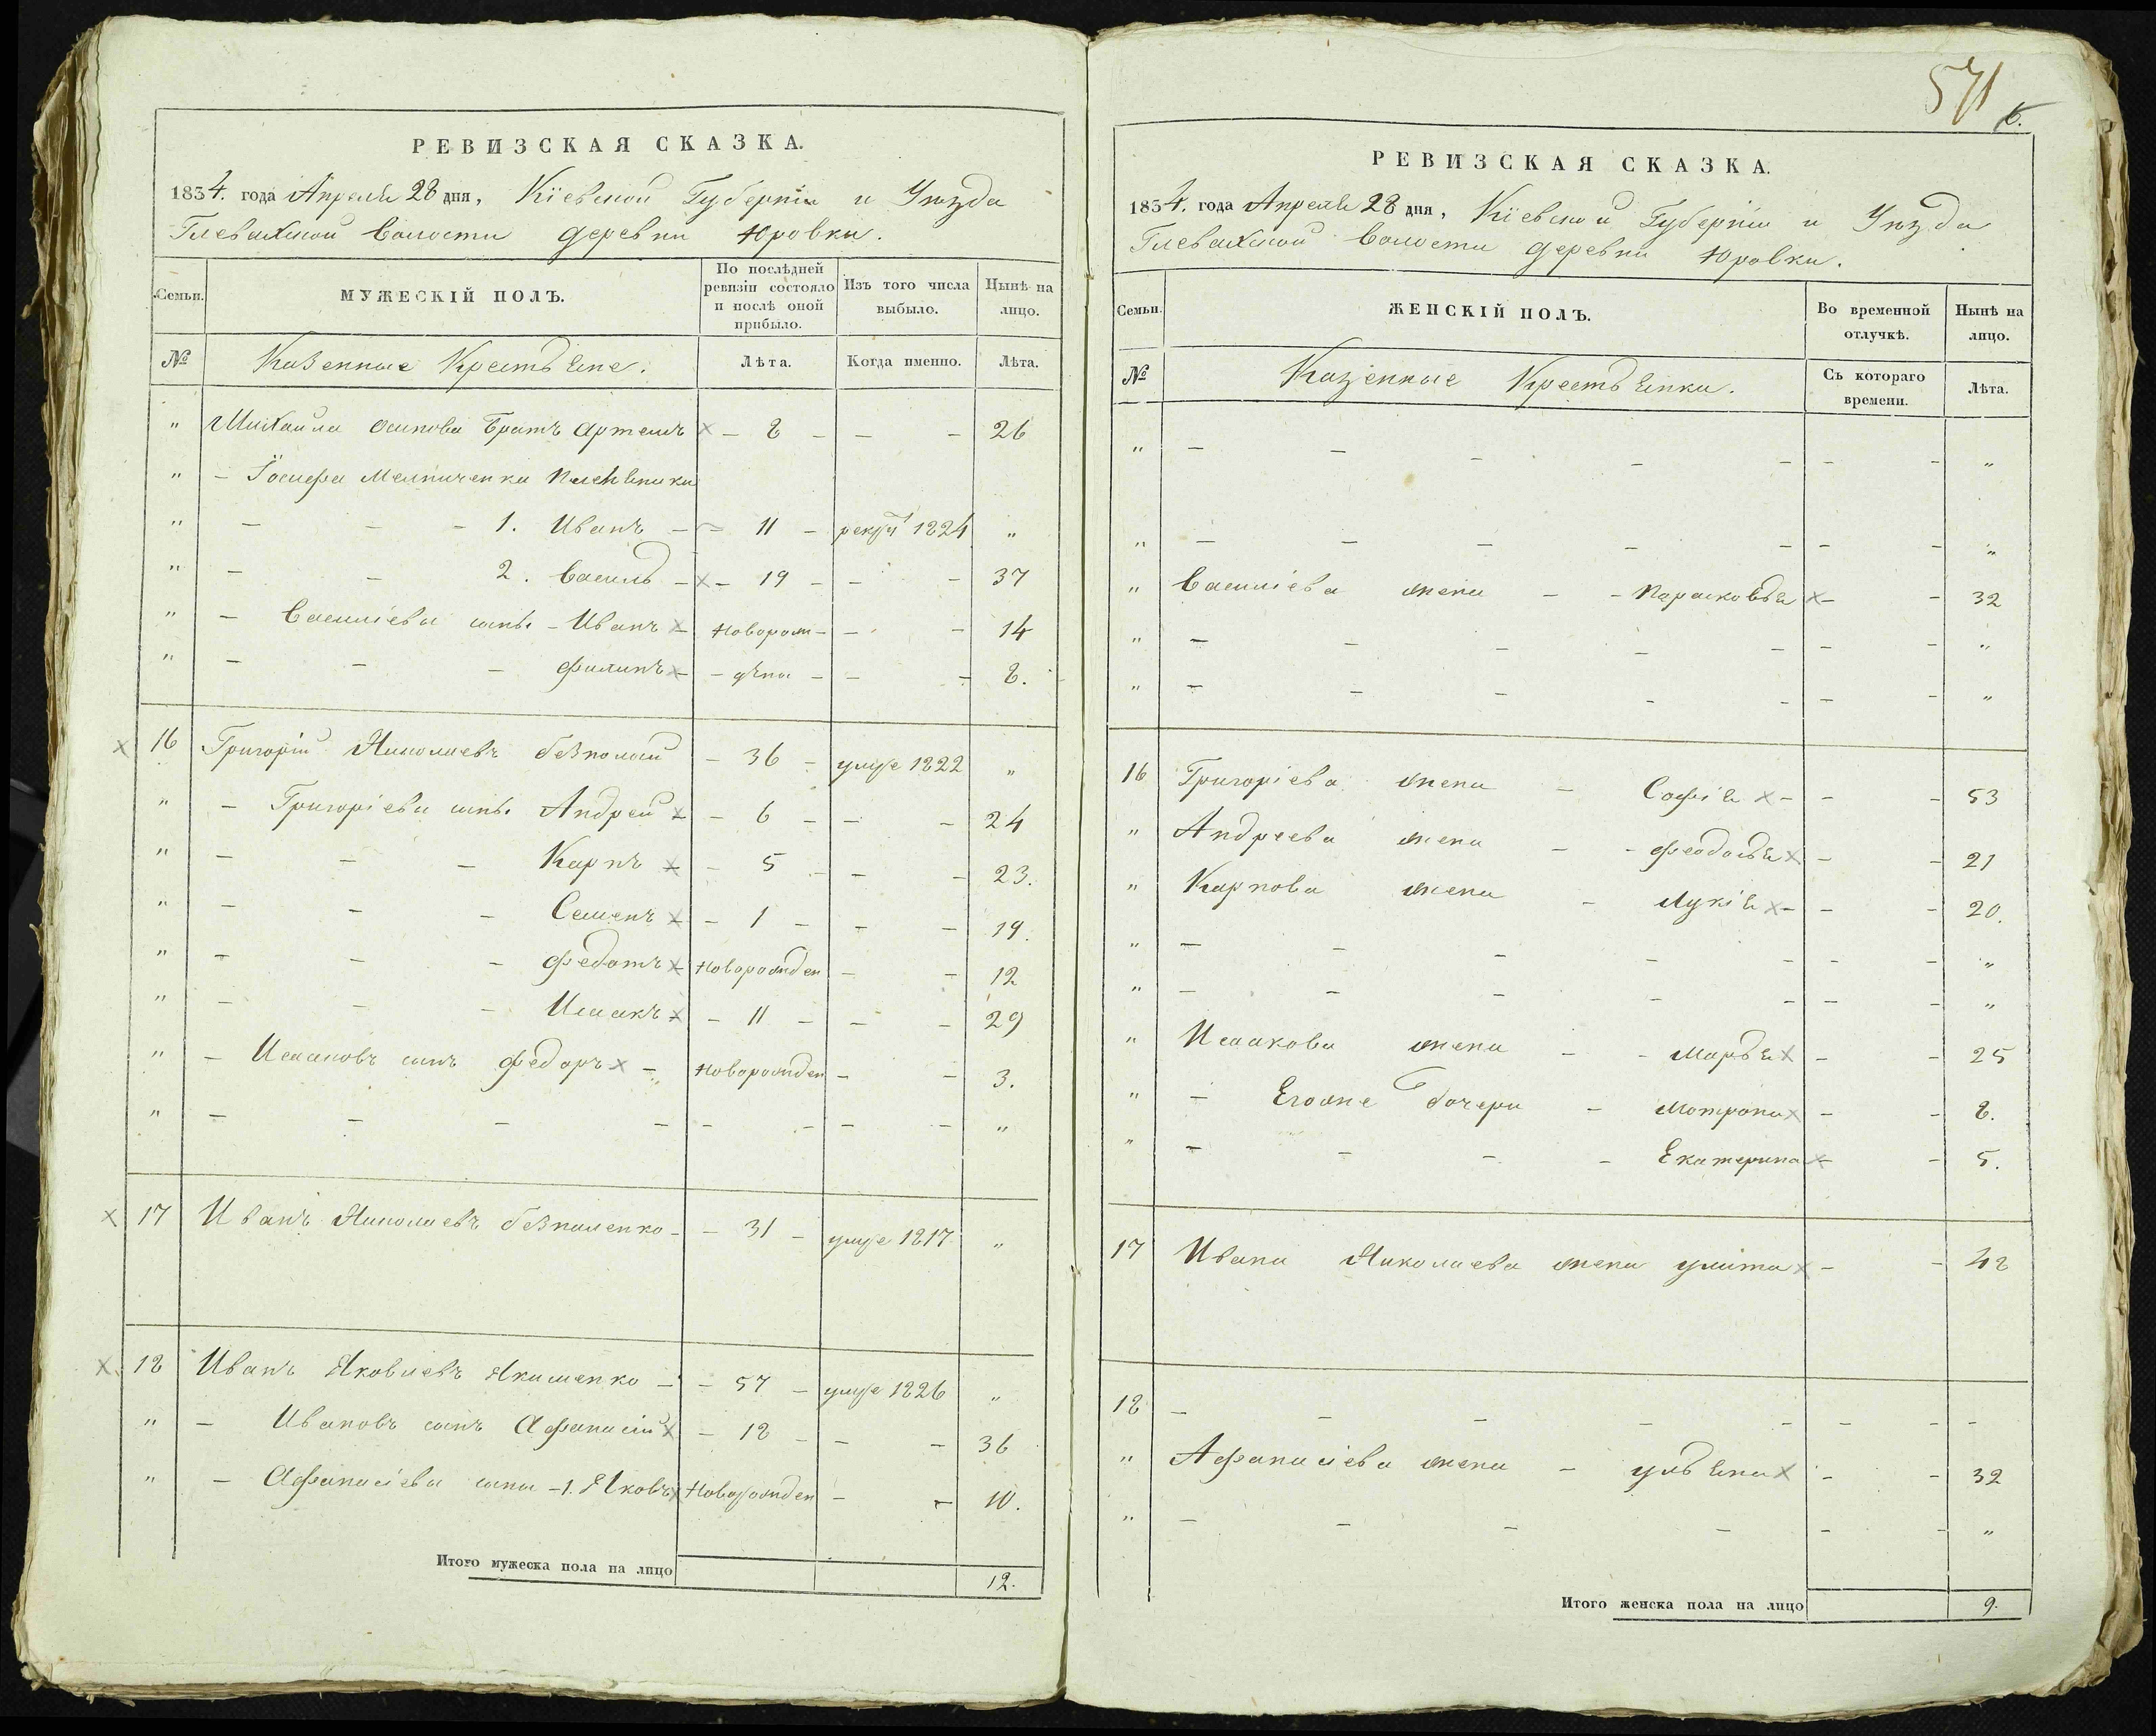 РЕВИЗСКАЯ СКАЗКА.
1834. года Апреля 28 дня, Кіевской Губерніи и Уѣзда
Глевахской Волости деревни Юровки.
Семьи. МУЖЕСКІЙ ПОЛЪ. По послѣдней ревизіи состояло и послѣ оной прибыло. Изъ того числа выбыло. Нынѣ на лицо.
№ Казенные Крестьяне. Лѣта. Когда именно. Лѣта.
" Михайла Осипова Братъ Артемъ - 8 - - - 26
" - Іосифа Мелниченка племѣнники
" - - - 1. Иванъ - 11 - рекру 1824 "
" - - 2. Василь - - 19 - - - 37
" - Василіевы сынь. - Иванъ - Новорож- - - 14
" - - - Филипъ - - дѣны - - - 8.
16 Григорій Николаевъ безпалый - 36 - умре 1822 "
" - Григоріевы сынь. Андрей - - 6 - - - 24
" - - - Карпъ - - 5 - - - 23.
" - - - Семенъ - - 1 - - - 19.
" - - - Федотъ - Новорожден - - 12
" - - - Исаакъ - - 11 - - - 29
" - Исааковъ сынъ Федоръ - Новорожден - - 3.
" - - - - - - - - "
17 Иванъ Николаевъ безпаленко - - 31 - умре 1817 "
18 Иванъ Яковлевъ Якименко - - 57 - умре 1826 "
" - Ивановъ сынъ Афанасій - 18 - - - 36
" - Афанасіевы сыны - 1. Яковъ Новорожден - - 10.
Итого мужеска пола на лицо 12.
571
6.
РЕВИЗСКАЯ СКАЗКА.
1834. года Апреля 28 дня, Кіевской Губерніи и Уѣзда
Глевахской Волости деревни Юровки.
Семьи. ЖЕНСКІЙ ПОЛЪ. Во временной отлучкѣ. Нынѣ на лицо.
№ Казенные Крестьянки. Съ котораго времени. Лѣта.
" - - - - - - - "
" - - - - - - - "
" Василіева жена - - Парасковья - - 32
" - - - - - - - "
" - - - - - - - "
16 Григоріева жена - Софія - - - 53
" Андреева жена - - Феодосья - - 21
" Карпова жена - Лукія - - - 20.
" - - - - - - - "
" - - - - - - - "
" Исаакова жена - - Марья - - 25
" - Егоже дочери - Мотрона - - 8.
" - - - - Екатерина - - 5.
17 Ивана Николаева жена улита - - 48
18 - - - - - - - -
" Афанасіева жена - ульяна - - 32
" - - - - - - "
Итого женска пола на лицо 9.